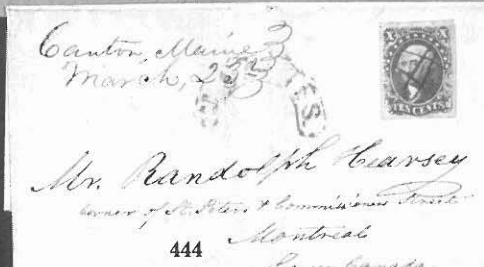 Canton, Maine
March, 25th
X X
TEN CENTS
Mr. Randolph Hearsey
Corner of St. Peters & Commissioners Streets
Montreal
444
Lower Canada